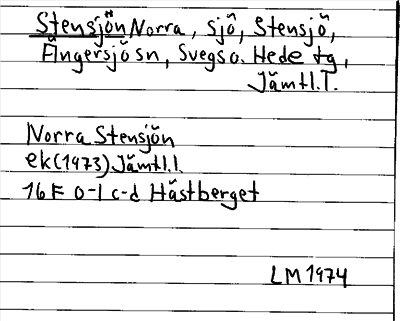 Stensjön Norra, sjö, Stensjö,
Ängersjö sn, Svegs o. Hede tg,
Jämtl.l.
Norra Stensjön
ek(1973) Jämtl.l.
16 F 0-1 c-d Hästberget
LM 1974